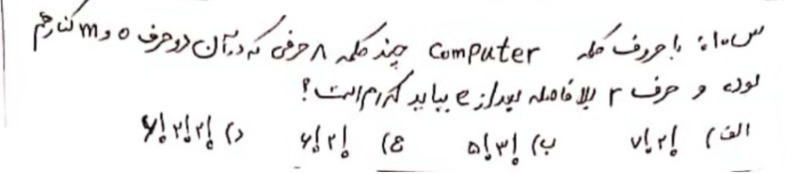 س۱۰۱: با حروف کلمه Computer چند کلمه ۸ حرفی که در آن دو حرف o و m کنار هم
بوده و حرف r بلافاصله بعد از e بیاید کدام است؟
الف) ۷!۲! ب) ۵!۳! ج) ۶!۲! د) ۶!۲!۲!